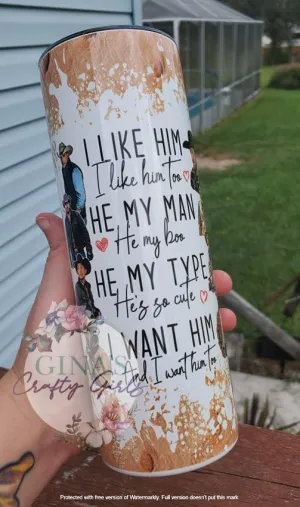 I LIKE HIM
I like him too
HE MY MAN
He my boo
HE MY TYPE
He's so cute
I WANT HIM
And I want him too
GINA'S
Crafty Girls
Protected with free version of Watermarkly. Full version doesn't put this mark